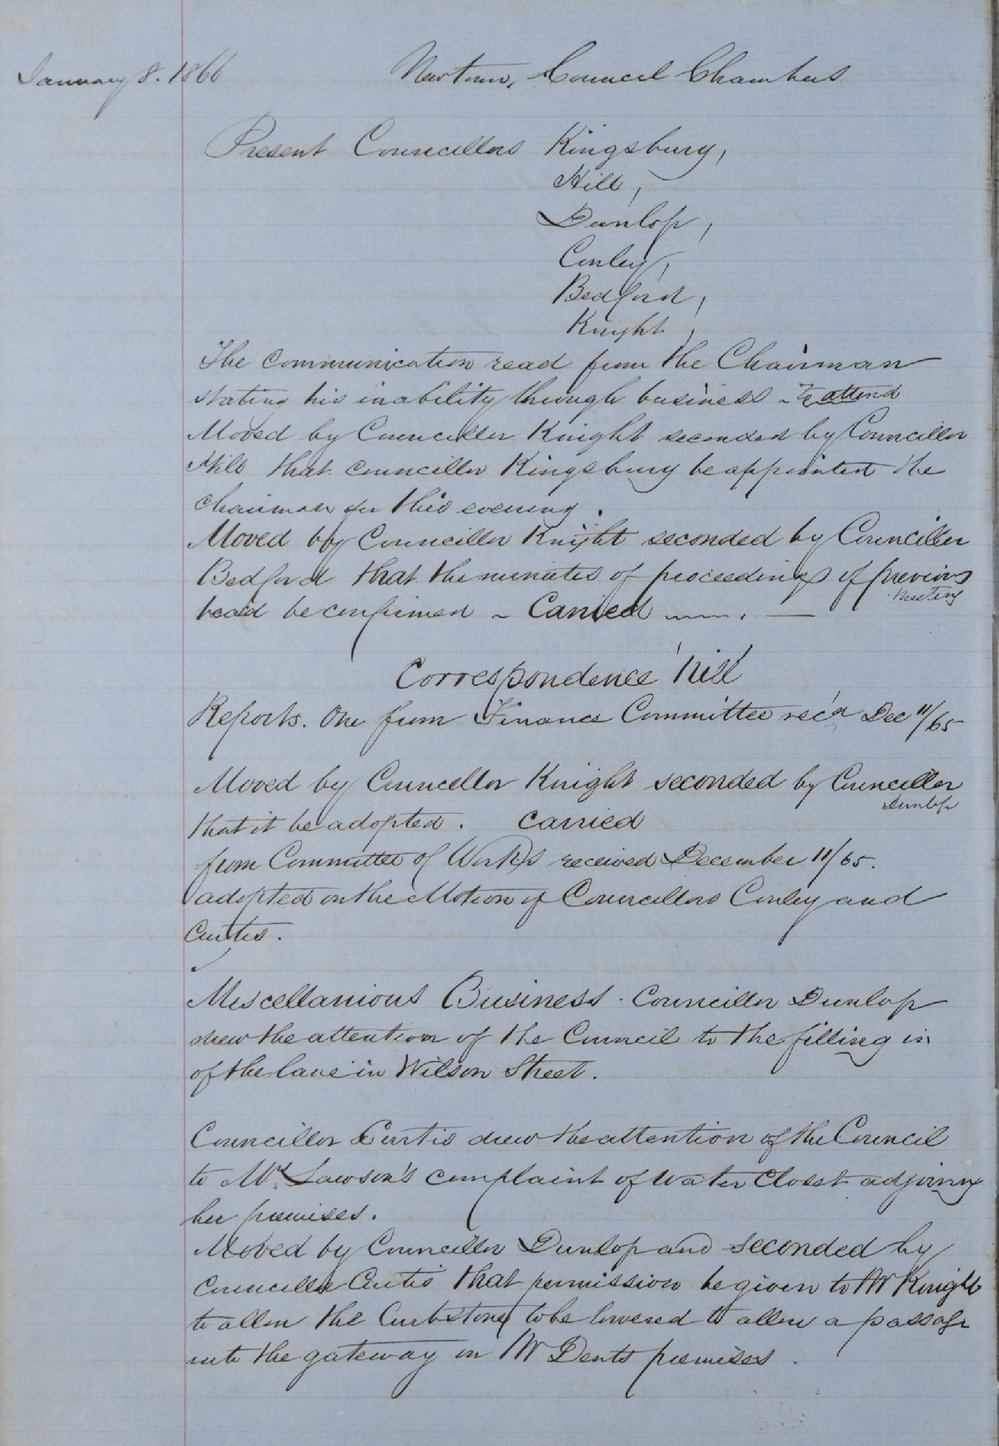 January 8. 1866 Newtown, Council Chambers
Present Councillors Kingsbury,
Hill,
Dunlop,
Conley,
Bedford,
Knight,
The communication read from the Chairman
stating his inability through business - to attend
Moved by Councillor Knight seconded by Councillor
Hill that Councillor Kingsbury be appointed the
Chairman for this evening.
Moved by Councillor Knight seconded by Councillor
Bedford that the minutes of proceedings of previous
Meeting
read be confirmed - Carried
Correspondence 'Nill'
Reports. One from Finance Committee rec'd Dec 11/65
Moved by Councellor Knight seconded by Councillor
Dunlop
that it be adopted. Carried
from Committee of Works received December 11/65.
adopted on the Motion of Councillors Conley and
Curtis.
Miscellanious Business. Councillor Dunlop
drew the attention of the Council to the filling in
of the lane in Wilson Street.
Councillor Curtis drew the attention of the Council
to Mrs Lawson's complaint of Water Closet adjoining
her premises.
Moved by Councillor Dunlop and seconded by
Councillor Curtis that permission be given to Mr Knight
to allow the Curbstone to be lowered to allow a passage
into the gateway on Mr Dents premises.